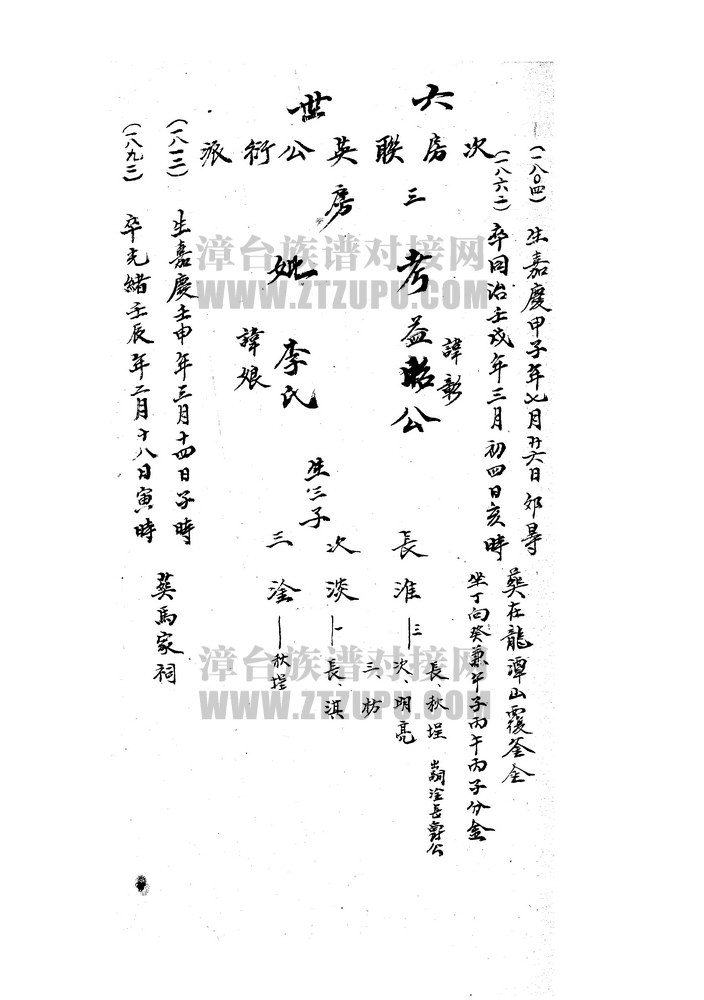 六世
次房聯英公衍派
(一八〇四) 生嘉慶甲子年七月廿六日卯時
(一八六二) 卒同治壬戌年三月初四日亥時
葬在龍潭山覆釜金
坐丁向癸兼午子丙午丙子分金
三房
考益昭公
諱彰
妣李氏
諱娘
(一八一二) 生嘉慶壬申年三月十四日子時
(一八九三) 卒光緒壬辰年二月十八日寅時
葬馬家祠
生三子
長淮 三
長、秋埕 出嗣淦長爵公
次、明亮
三、枋
次淡 一
長、淇
三淦
秋埕
漳台族谱对接网
WWW.ZTZUPU.COM
漳台族谱对接网
WWW.ZTZUPU.COM